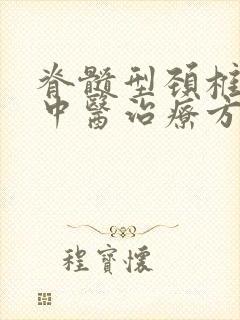 脊髓型颈椎
中醫治療方
程寶懷